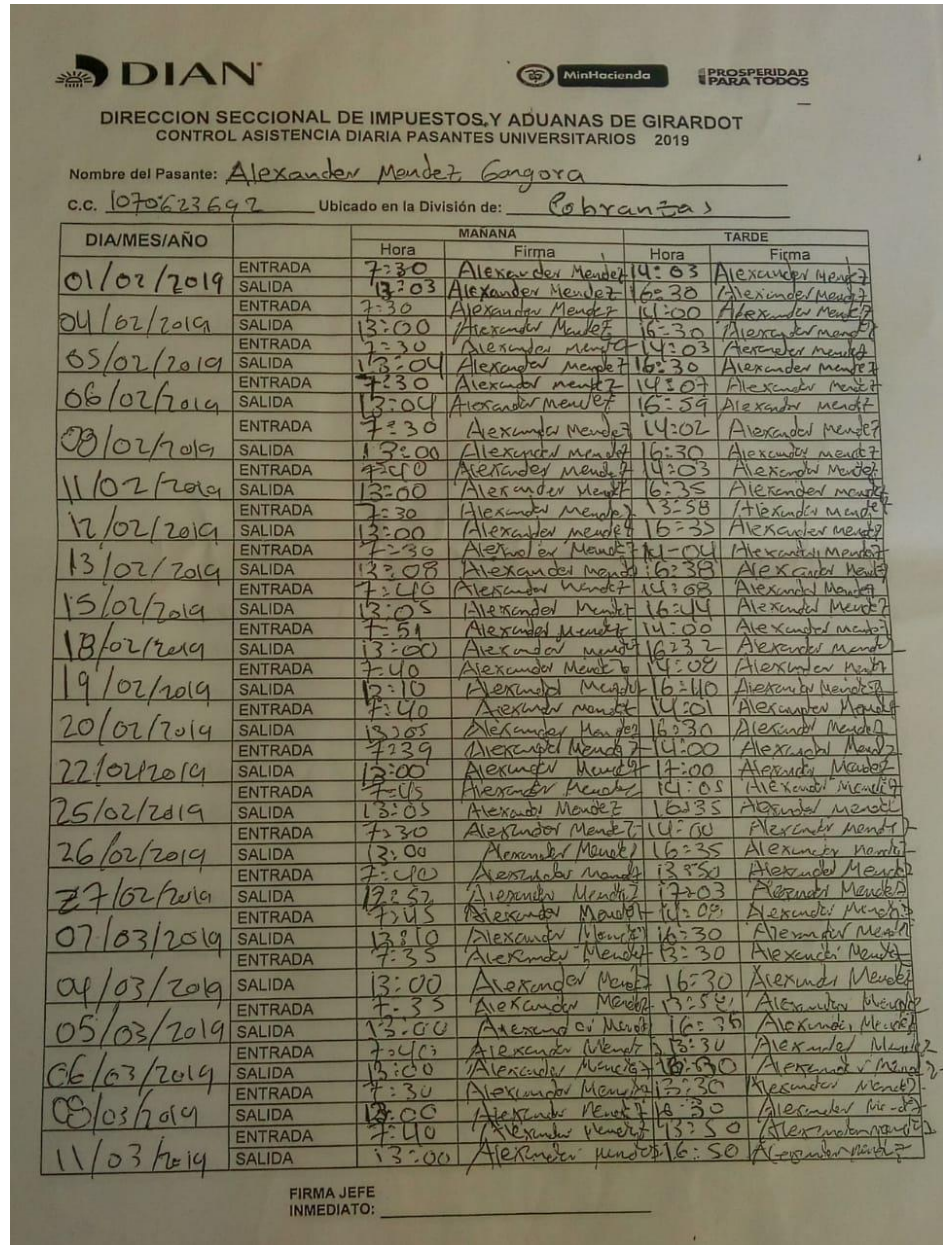 DIAN
MinHacienda
PROSPERIDAD
PARA TODOS
DIRECCION SECCIONAL DE IMPUESTOS Y ADUANAS DE GIRARDOT
CONTROL ASISTENCIA DIARIA PASANTES UNIVERSITARIOS 2019
Nombre del Pasante: Alexander Mendez Gongora
C.C. 1070623692 Ubicado en la División de: Cobranzas
DIA/MES/AÑO MAÑANA TARDE
Hora Firma Hora Firma
01/02/2019 ENTRADA 7:30 Alexander Mendez 14:03 Alexander Mendez
SALIDA 13:03 Alexander Mendez 16:30 Alexander Mendez
04/02/2019 ENTRADA 7:30 Alexander Mendez 14:00 Alexander Mendez
SALIDA 13:00 Alexander Mendez 16:30 Alexander Mendez
05/02/2019 ENTRADA 7:30 Alexander Mendez 14:03 Alexander Mendez
SALIDA 13:04 Alexander Mendez 16:30 Alexander Mendez
06/02/2019 ENTRADA 7:30 Alexander Mendez 14:07 Alexander Mendez
SALIDA 13:04 Alexander Mendez 16:59 Alexander Mendez
08/02/2019 ENTRADA 7:30 Alexander Mendez 14:02 Alexander Mendez
SALIDA 13:00 Alexander Mendez 16:30 Alexander Mendez
11/02/2019 ENTRADA 7:40 Alexander Mendez 14:03 Alexander Mendez
SALIDA 13:00 Alexander Mendez 16:35 Alexander Mendez
12/02/2019 ENTRADA 7:30 Alexander Mendez 13:58 Alexander Mendez
SALIDA 13:00 Alexander Mendez 16:35 Alexander Mendez
13/02/2019 ENTRADA 7:30 Alexander Mendez 14:04 Alexander Mendez
SALIDA 13:08 Alexander Mendez 16:38 Alexander Mendez
15/02/2019 ENTRADA 7:40 Alexander Mendez 14:08 Alexander Mendez
SALIDA 13:05 Alexander Mendez 16:44 Alexander Mendez
18/02/2019 ENTRADA 7:51 Alexander Mendez 14:00 Alexander Mendez
SALIDA 13:00 Alexander Mendez 16:32 Alexander Mendez
19/02/2019 ENTRADA 7:40 Alexander Mendez 14:08 Alexander Mendez
SALIDA 13:10 Alexander Mendez 16:40 Alexander Mendez
20/02/2019 ENTRADA 7:40 Alexander Mendez 14:01 Alexander Mendez
SALIDA 13:05 Alexander Mendez 16:30 Alexander Mendez
22/02/2019 ENTRADA 7:39 Alexander Mendez 14:00 Alexander Mendez
SALIDA 13:00 Alexander Mendez 17:00 Alexander Mendez
25/02/2019 ENTRADA 7:45 Alexander Mendez 14:05 Alexander Mendez
SALIDA 13:05 Alexander Mendez 16:35 Alexander Mendez
26/02/2019 ENTRADA 7:30 Alexander Mendez 14:00 Alexander Mendez
SALIDA 13:00 Alexander Mendez 16:35 Alexander Mendez
27/02/2019 ENTRADA 7:40 Alexander Mendez 13:50 Alexander Mendez
SALIDA 12:52 Alexander Mendez 17:03 Alexander Mendez
07/03/2019 ENTRADA 7:45 Alexander Mendez Alexander Mendez
SALIDA 13:10 Alexander Mendez 16:30 Alexander Mendez
04/03/2019 ENTRADA 7:35 Alexander Mendez 13:30 Alexander Mendez
SALIDA 13:00 Alexander Mendez 16:30 Alexander Mendez
05/03/2019 ENTRADA 7:35 Alexander Mendez Alexander Mendez
SALIDA 13:00 Alexander Mendez 16:36 Alexander Mendez
06/03/2019 ENTRADA Alexander Mendez 13:30 Alexander Mendez
SALIDA 13:00 Alexander Mendez 16:30 Alexander Mendez
08/03/2019 ENTRADA 7:30 Alexander Mendez 13:30 Alexander Mendez
SALIDA 13:00 Alexander Mendez 16:30 Alexander Mendez
11/03/2019 ENTRADA 7:40 Alexander Mendez 13:50 Alexander Mendez
SALIDA 13:00 Alexander Mendez 16:50 Alexander Mendez
FIRMA JEFE
INMEDIATO: